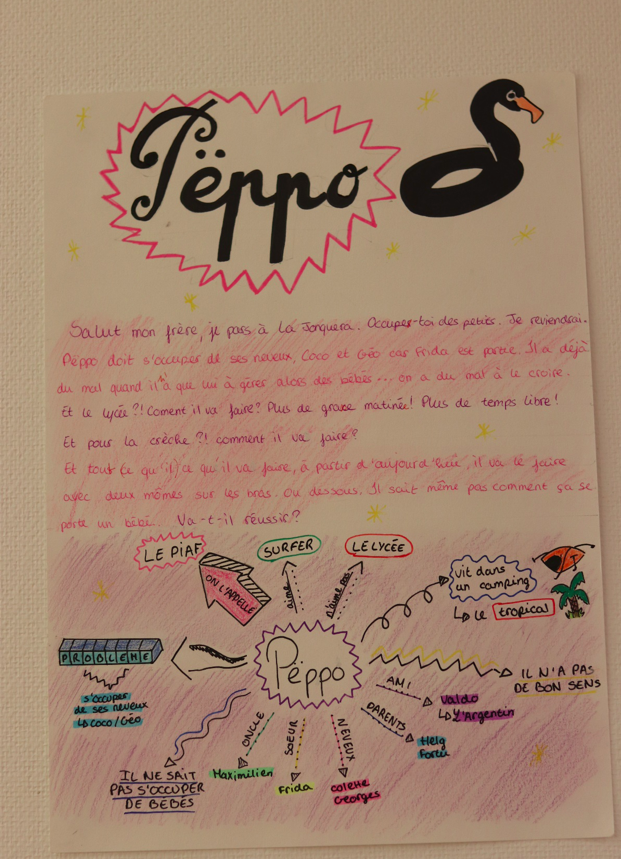 Pëppo
Salut mon frère, je pars à La Jonquera. Occupes-toi des petits. Je reviendrai.
Pëppo doit s'occuper de ses neveux, Coco et Géo car Frida est partie. Il a déjà
du mal quand il à que lui à gérer alors des bébés... on a du mal à le croire.
Et le lycée ?! Coment il va faire? Plus de grasse matinée! Plus de temps libre!
Et pour la crèche ?! comment il va faire?
Et tout ce qu'il a qu'il va faire, à partir d'aujourd'hui, il va le faire
avec deux mômes sur les bras. Ou dessous. Il sait même pas comment ça se
porte un bébé.. Va-t-il réussir?
LE PIAF
SURFER
LE LYCÉE
ON L'APPELLE
aime
n'aime pas
vit dans
un camping
↳ Le tropical
PROBLEME
s'occuper
de ses neveux
↳ Coco/Géo
Pëppo
IL N'A PAS
DE BON SENS
AMI
Valdo
↳ L'Argentin
PARENTS
Helg
IL NE SAIT
PAS S'OCCUPER
DE BEBES
ONCLE
Maximilien
SOEUR
Frida
NEVEUX
Colette
Georges